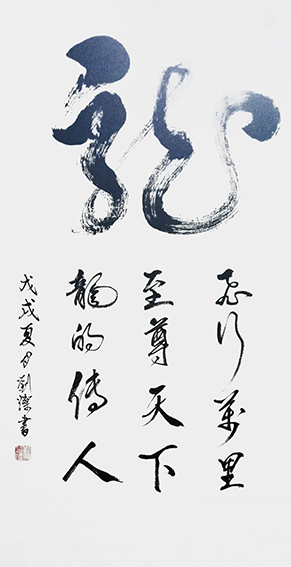 龍
飛行萬里
至尊天下
龍的傳人
戊戌夏月劉濤書